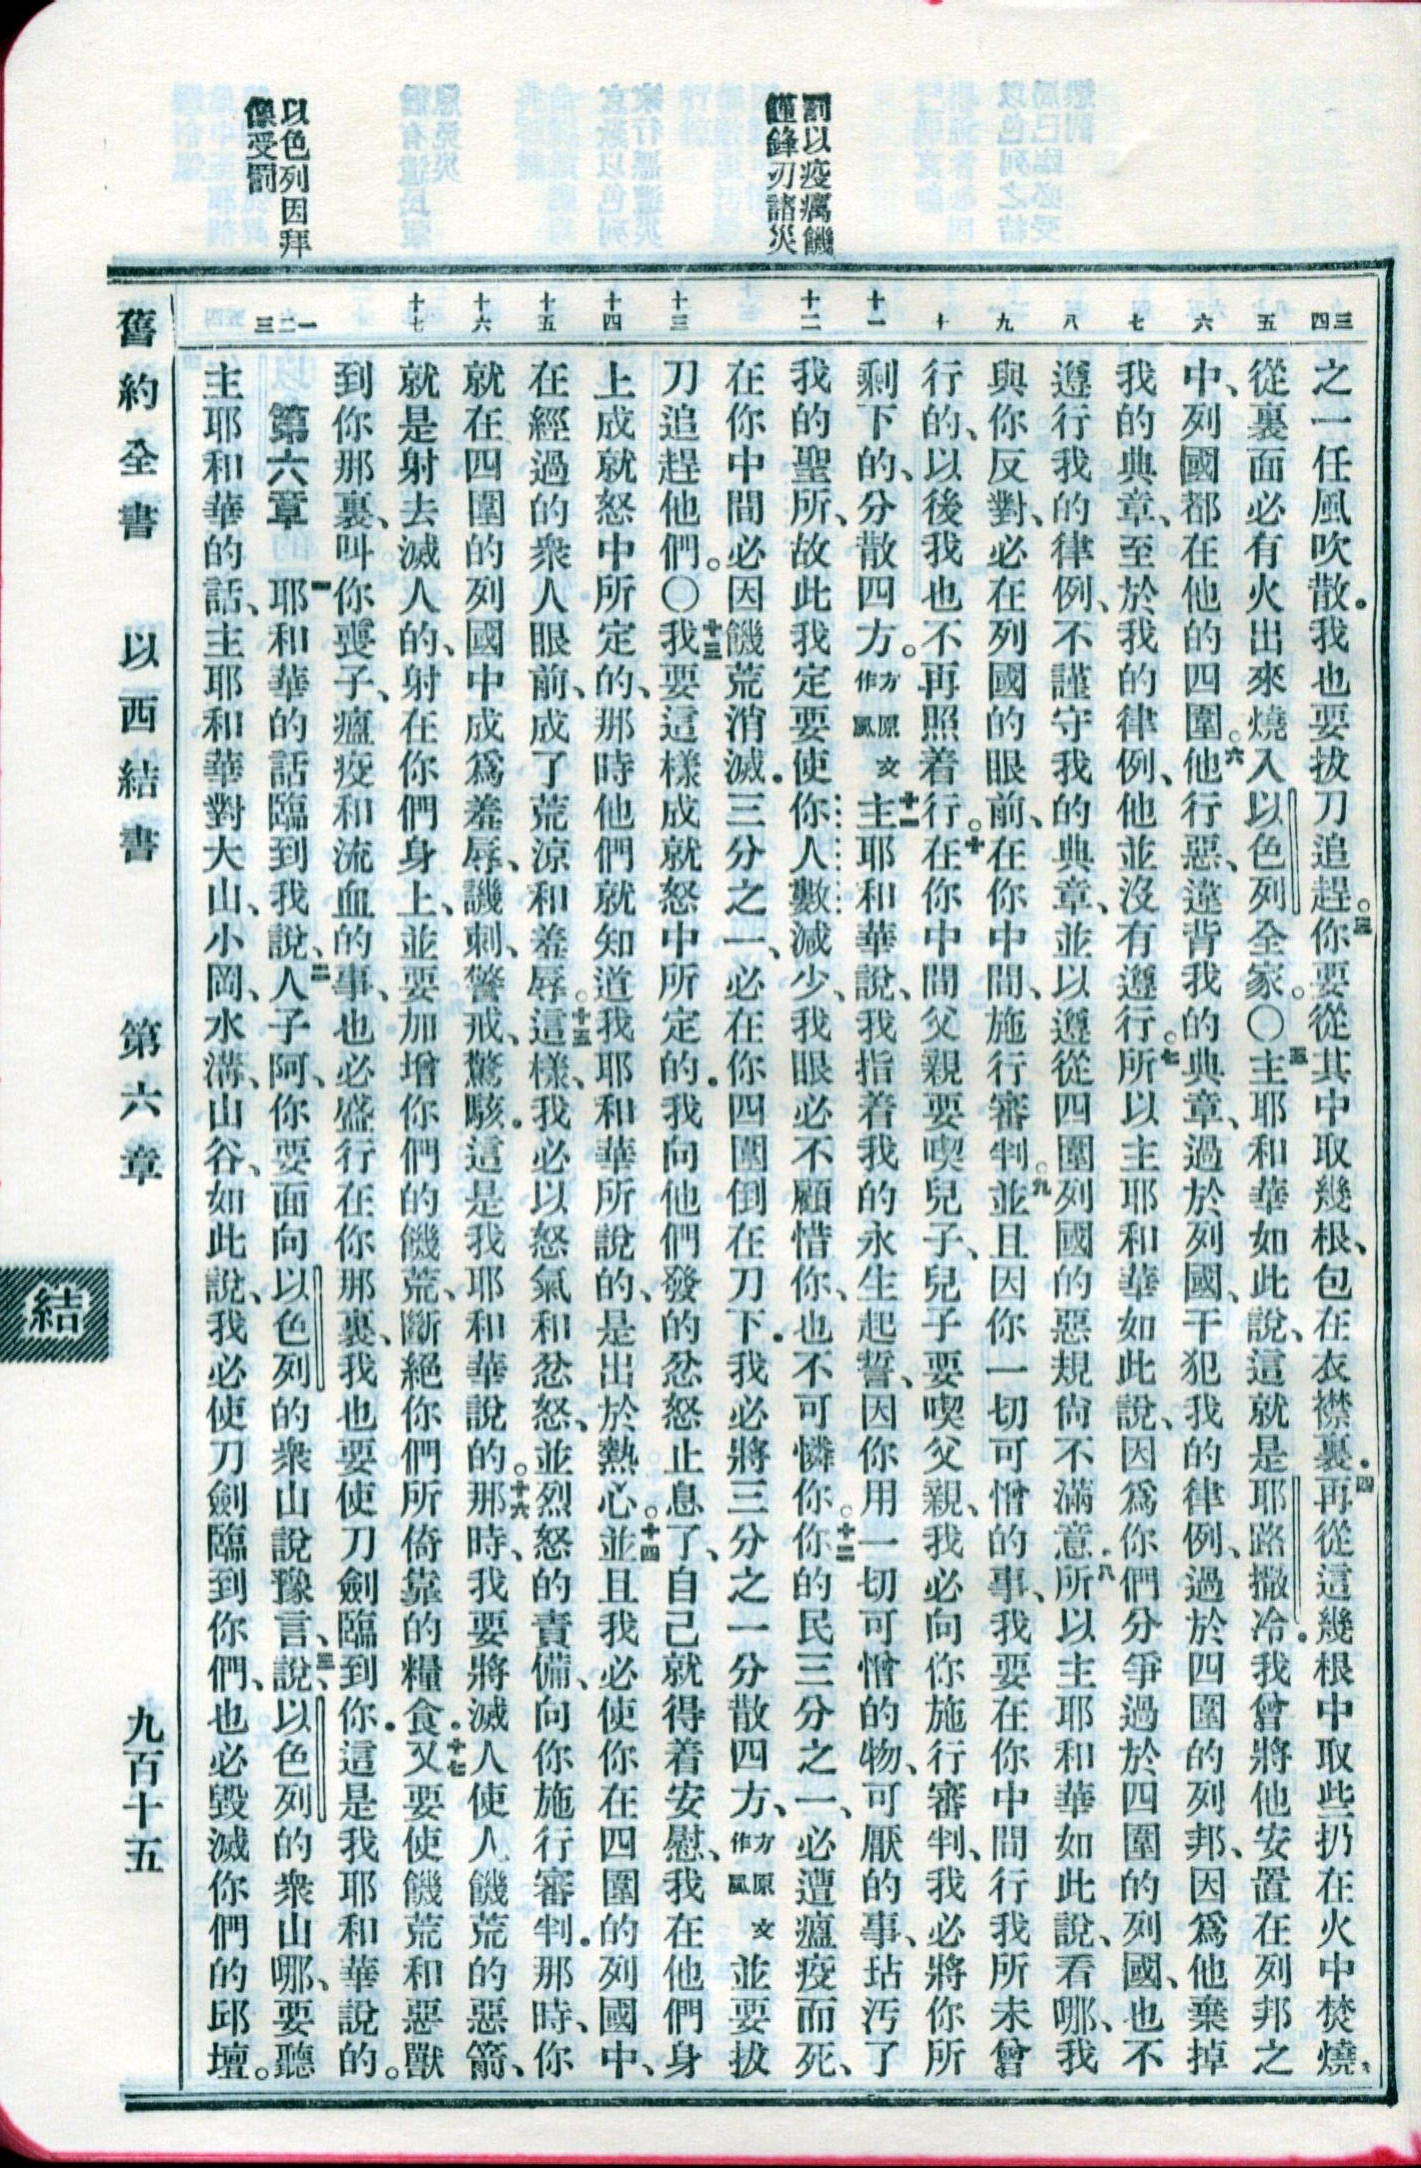 罰以疫癘饑
饉鋒刃諸災
以色列因拜
像受罰
三 四 五 六 七 八 九 十 十一 十二 十三 十四 十五 十六 十七 一 二 三
之一任風吹散．我也要拔刀追趕。三你要從其中取幾根、包在衣襟裏．四再從這幾根中取些扔在火中焚燒、
從裏面必有火出來燒入以色列全家。〇五主耶和華如此說、這就是耶路撒冷．我曾將他安置在列邦之
中、列國都在他的四圍。六他行惡、違背我的典章、過於列國、干犯我的律例、過於四圍的列邦、因爲他棄掉
我的典章、至於我的律例、他並沒有遵行。七所以主耶和華如此說、因爲你們分爭過於四圍的列國、也不
遵行我的律例、不謹守我的典章、並以遵從四圍列國的惡規尙不滿意．八所以主耶和華如此說、看哪、我
與你反對、必在列國的眼前、在你中間、施行審判。九並且因你一切可憎的事、我要在你中間行我所未曾
行的、以後我也不再照着行。十在你中間父親要喫兒子、兒子要喫父親、我必向你施行審判、我必將你所
剩下的、分散四方。方原文作風十一主耶和華說、我指着我的永生起誓、因你用一切可憎的物、可厭的事、玷污了
我的聖所、故此我定要使你人數減少、我眼必不顧惜你、也不可憐你。十二你的民三分之一、必遭瘟疫而死、
在你中間必因饑荒消滅．三分之一、必在你四圍倒在刀下．我必將三分之一分散四方、方原文作風並要拔
刀追趕他們。〇十三我要這樣成就怒中所定的．我向他們發的忿怒止息了、自己就得着安慰、我在他們身
上成就怒中所定的、那時他們就知道我耶和華所說的、是出於熱心。十四並且我必使你在四圍的列國中、
在經過的衆人眼前、成了荒涼和羞辱。十五這樣、我必以怒氣和忿怒、並烈怒的責備、向你施行審判．那時、你
就在四圍的列國中成爲羞辱、譏刺、警戒、驚駭．這是我耶和華說的。十六那時、我要將滅人使人饑荒的惡箭、
就是射去滅人的、射在你們身上、並要加增你們的饑荒、斷絕你們所倚靠的糧食．十七又要使饑荒和惡獸
到你那裏、叫你喪子、瘟疫和流血的事、也必盛行在你那裏、我也要使刀劍臨到你．這是我耶和華說的。
第六章 一耶和華的話臨到我說、二人子阿、你要面向以色列的衆山說豫言、三說、以色列的衆山哪、要聽
主耶和華的話、主耶和華對大山、小岡、水溝、山谷、如此說、我必使刀劍臨到你們、也必毀滅你們的邱壇。
舊約全書 以西結書 第六章 九百十五
結